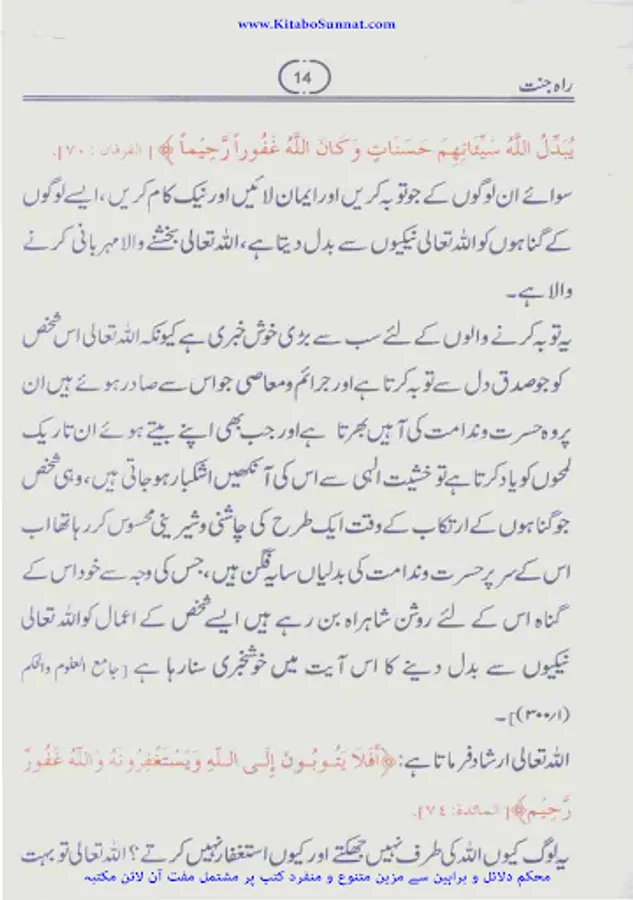 www.KitaboSunnat.com
راہ جنت
14
يُبَدِّلُ اللَّهُ سَيِّئَاتِهِمْ حَسَنَاتٍ وَكَانَ اللَّهُ غَفُوراً رَّحِيماً﴾ [الفرقان : ٧٠].
سوائے ان لوگوں کے جو توبہ کریں اور ایمان لائیں اور نیک کام کریں، ایسے لوگوں
کے گناہوں کو اللہ تعالی نیکیوں سے بدل دیتا ہے، اللہ تعالی بخشنے والا مہربانی کرنے
والا ہے۔
یہ توبہ کرنے والوں کے لئے سب سے بڑی خوش خبری ہے کیونکہ اللہ تعالی اس شخص
کو جو صدق دل سے توبہ کرتا ہے اور جرائم و معاصی جو اس سے صادر ہوئے ہیں ان
پر وہ حسرت و ندامت کی آہیں بھرتا ہے اور جب بھی اپنے بیتے ہوئے ان تاریک
لمحوں کو یاد کرتا ہے تو خشیت الہی سے اس کی آنکھیں اشکبار ہو جاتی ہیں، وہی شخص
جو گناہوں کے ارتکاب کے وقت ایک طرح کی چاشنی و شیرینی محسوس کر رہا تھا اب
اس کے سر پر حسرت و ندامت کی بدلیاں سایہ فگن ہیں، جس کی وجہ سے خود اس کے
گناہ اس کے لئے روشن شاہراہ بن رہے ہیں ایسے شخص کے اعمال کو اللہ تعالی
نیکیوں سے بدل دینے کا اس آیت میں خوشخبری سنا رہا ہے [جامع العلوم والحکم
(۳۰۰/۱)]۔
اللہ تعالی ارشاد فرماتا ہے: ﴿أَفَلَا يَتُوبُونَ إِلَى اللهِ وَيَسْتَغْفِرُونَهُ وَاللَّهُ غَفُورٌ
رَّحِيم﴾ [المائدة: ٧٤].
یہ لوگ کیوں اللہ کی طرف نہیں جھکتے اور کیوں استغفار نہیں کرتے؟ اللہ تعالی تو بہت
محکم دلائل و براہین سے مزین متنوع و منفرد کتب پر مشتمل مفت آن لائن مکتبہ